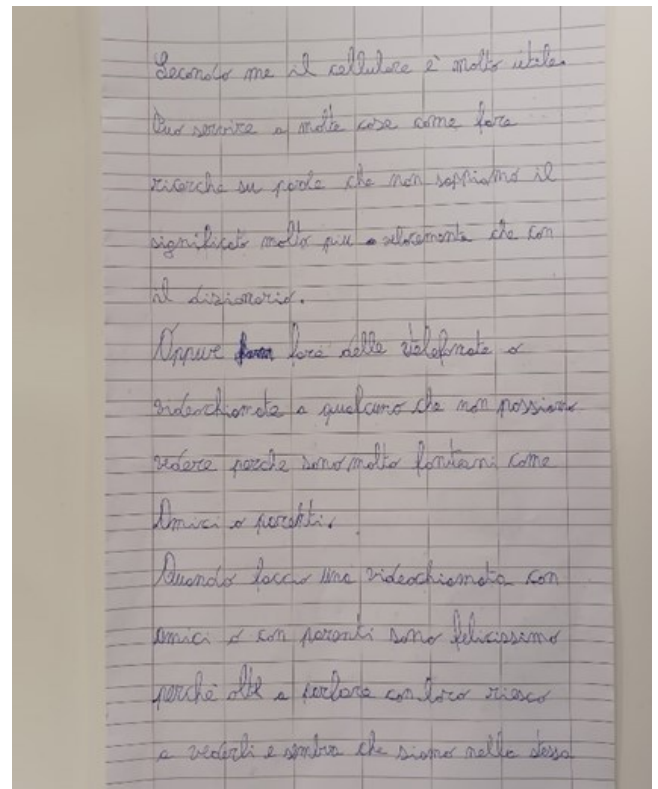 Secondo me il cellulare è molto utile.
Può servire a molte cose come fare
ricerche su parole che non sappiamo il
significato molto più velocemente che con
il dizionario.
Oppure fare delle telefonate o
videochiamate a qualcuno che non possiamo
vedere perche sono molto lontani come
Amici o parenti.
Quando faccio una videochiamata con
amici o con parenti sono felicissimo
perché oltre a parlare con loro riesco
a vederli e sembra che siamo nella stessa